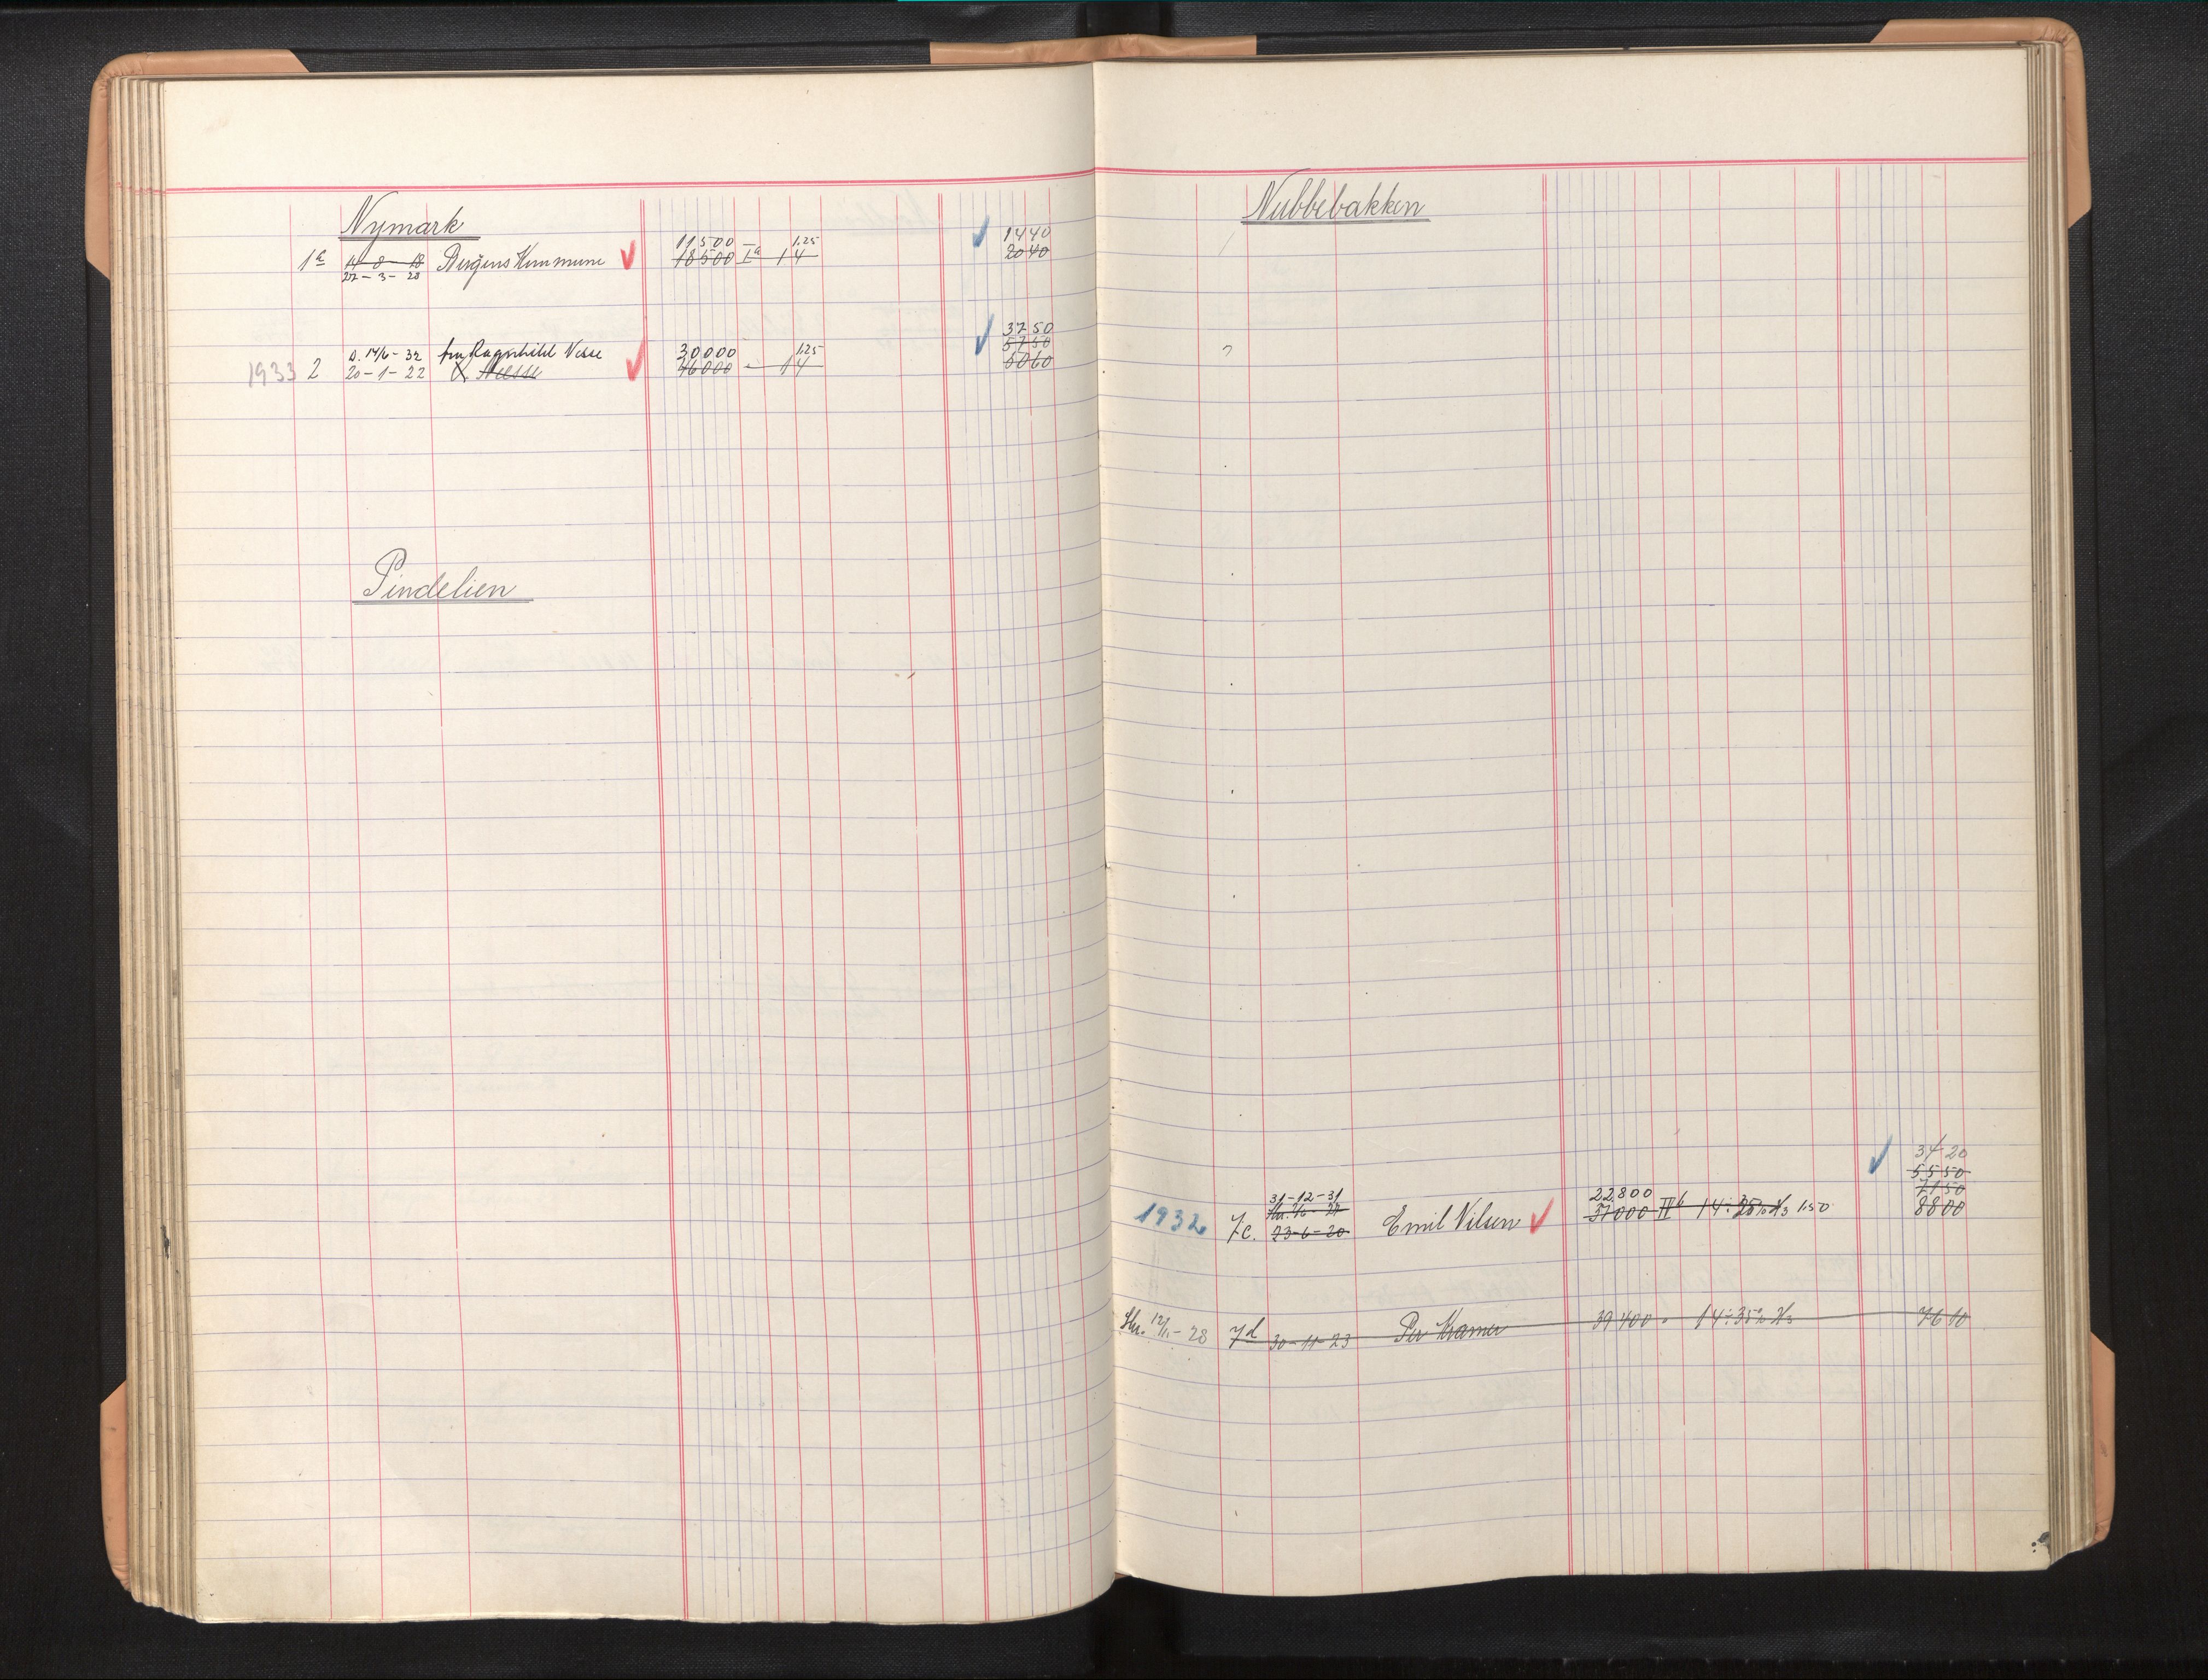 Nymark
11500 — 1.25 1440
1a 14-8-18 Bergens Kommune 18500 Ia 14 2040
27-3-28
3750
s. 14/6-32 fru Ragnhild Nesse 30000 1.25 5750
1933 2 20-1-22 O. Nesse 46000 - 14 5060
Pindelien
Nubbebakken
3420
5550
31-12-31 22800 7150
1932 7c. 23-6-20 Emil Nilsen 37000 IIb 14 1.50 8800
12/11-28 7d 30-11-23 Per Kramer 39400 " 14 ÷ 35% 7610